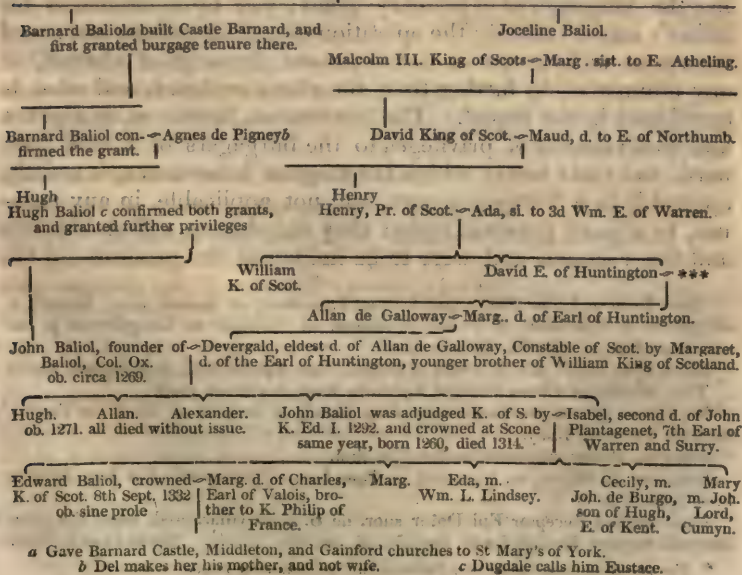 Barnard Baliola built Castle Barnard, and
first granted burgage tenure there.
Joceline Baliol.
Malcolm III. King of Scots Marg. sist. to E. Atheling.
Barnard Baliol con-
firmed the grant.
Agnes de Pigneyb
David King of Scot. Maud, d. to E. of Northumb.
Hugh
Hugh Baliol c confirmed both grants,
and granted further privileges
Henry
Henry, Pr. of Scot. Ada, si. to 3d Wm. E. of Warren.
William
K. of Scot.
David E. of Huntington ***
Allan de Galloway Marg.. d. of Earl of Huntington.
John Baliol, founder of
Baliol, Col. Ox.
ob. circa 1269.
Devergald, eldest d. of Allan de Galloway, Constable of Scot. by Margaret,
d. of the Earl of Huntington, younger brother of William King of Scotland.
Hugh. Allan. Alexander.
ob. 1271. all died without issue.
John Baliol was adjudged K. of S. by
K. Ed. I. 1292. and crowned at Scone
same year, born 1260, died 1314.
Isabel, second d. of John
Plantagenet, 7th Earl of
Warren and Surry.
Edward Baliol, crowned
K. of Scot. 8th Sept. 1332
ob. sine prole
Marg. d. of Charles,
Earl of Valois, bro-
ther to K. Philip of
France.
Marg.
Eda, m.
Wm. L. Lindsey.
Cecily, m.
Joh. de Burgo,
son of Hugh,
E. of Kent.
Mary
m. Joh.
Lord,
Cumyn.
a Gave Barnard Castle, Middleton, and Gainford churches to St Mary's of York.
b Del makes her his mother, and not wife. c Dugdale calls him Eustace.